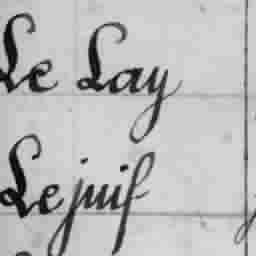 Le Lay
Lejuif